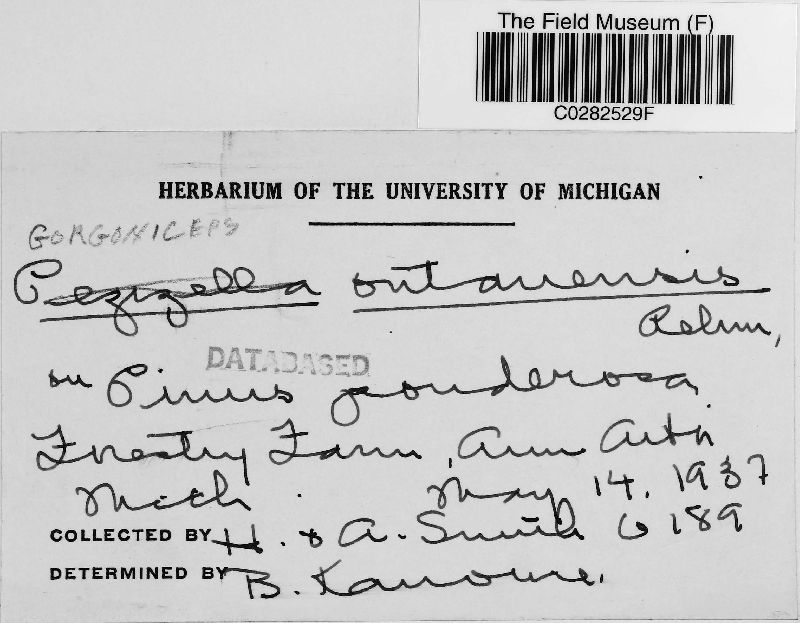 The Field Museum (F)
C0282529F
HERBARIUM OF THE UNIVERSITY OF MICHIGAN
GORGONICEPS
Pezizella ontariensis
Rehm,
DATABASED
on Pinus ponderosa,
Forestry Farm, Ann Arbor
Mich. May 14, 1937
COLLECTED BY H. & A. Smith 6189
DETERMINED BY B. Kanouse.